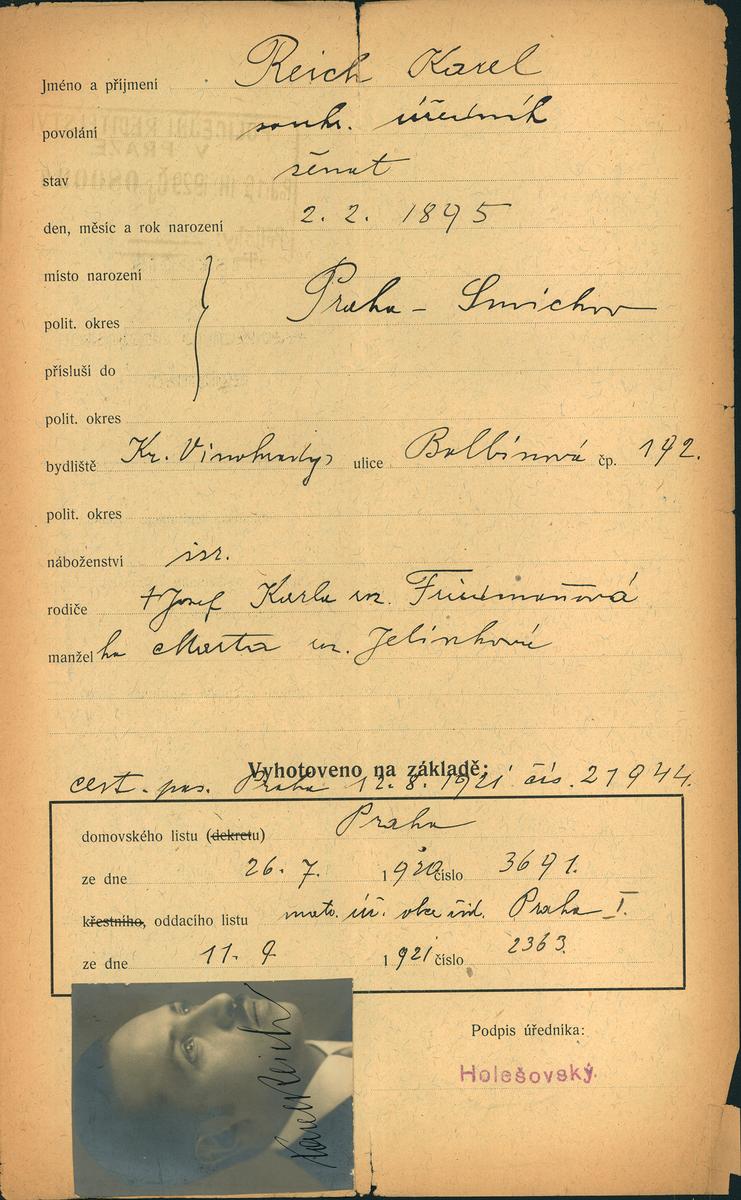 Jméno a příjmení Reich Karel
povolání soukr. úředník
stav ženat
den, měsíc a rok narození 2. 2. 1895
místo narození
polit. okres Praha - Smíchov
přísluší do
polit. okres
bydliště Kr. Vinohrady, ulice Balbínová čp. 192.
polit. okres
náboženství isr.
rodiče +Josef Karla roz. Friedmannová
manželka Marta roz. Jelínková
Vyhotoveno na základě:
cest. pas. Praha 12.8.1921 čís. 21944.
domovského listu (dekretu) Praha
ze dne 26. 7. 1920 číslo 3691.
křestního, oddacího listu mat. úř. obce žid. Praha I.
ze dne 11. 9 1921 číslo 2363.
Podpis úředníka:
Holešovský.
Karel Reich